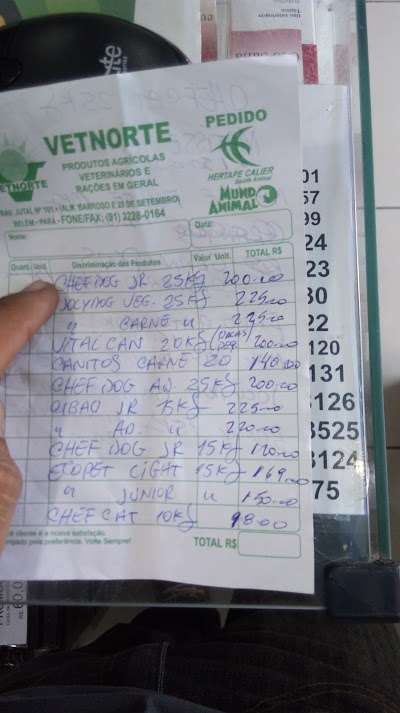 VETNORTE
PRODUTOS AGRÍCOLAS
VETERINÁRIOS E
RAÇÕES EM GERAL
PEDIDO
HERTAPE CALIER
Saúde Animal
MUNDO
ANIMAL
BELÉM - PARÁ - FONE/FAX: (91) 3228-0164
Nome:
Data:
Quant./Unid. Discriminação dos Produtos Valor Unit. TOTAL R$
CHEF DOG JR 25Kg 200.00
JOLYDOG VEG. 25Kg 225.00
" CARNE " 225.00
VITAL CAN 20Kg 200.00
CANITOS CARNE 20 140.00
CHEF DOG AD 25Kg 200.00
JR 15Kg 225.00
" AD " 220.00
CHEF DOG JR 15Kg
15Kg 169.00
" JUNIOR "
CHEF CAT 10Kg 98.00
preferência. Volte Sempre!
TOTAL R$
01
57
99
24
23
30
22
120
131
3126
3525
3124
75